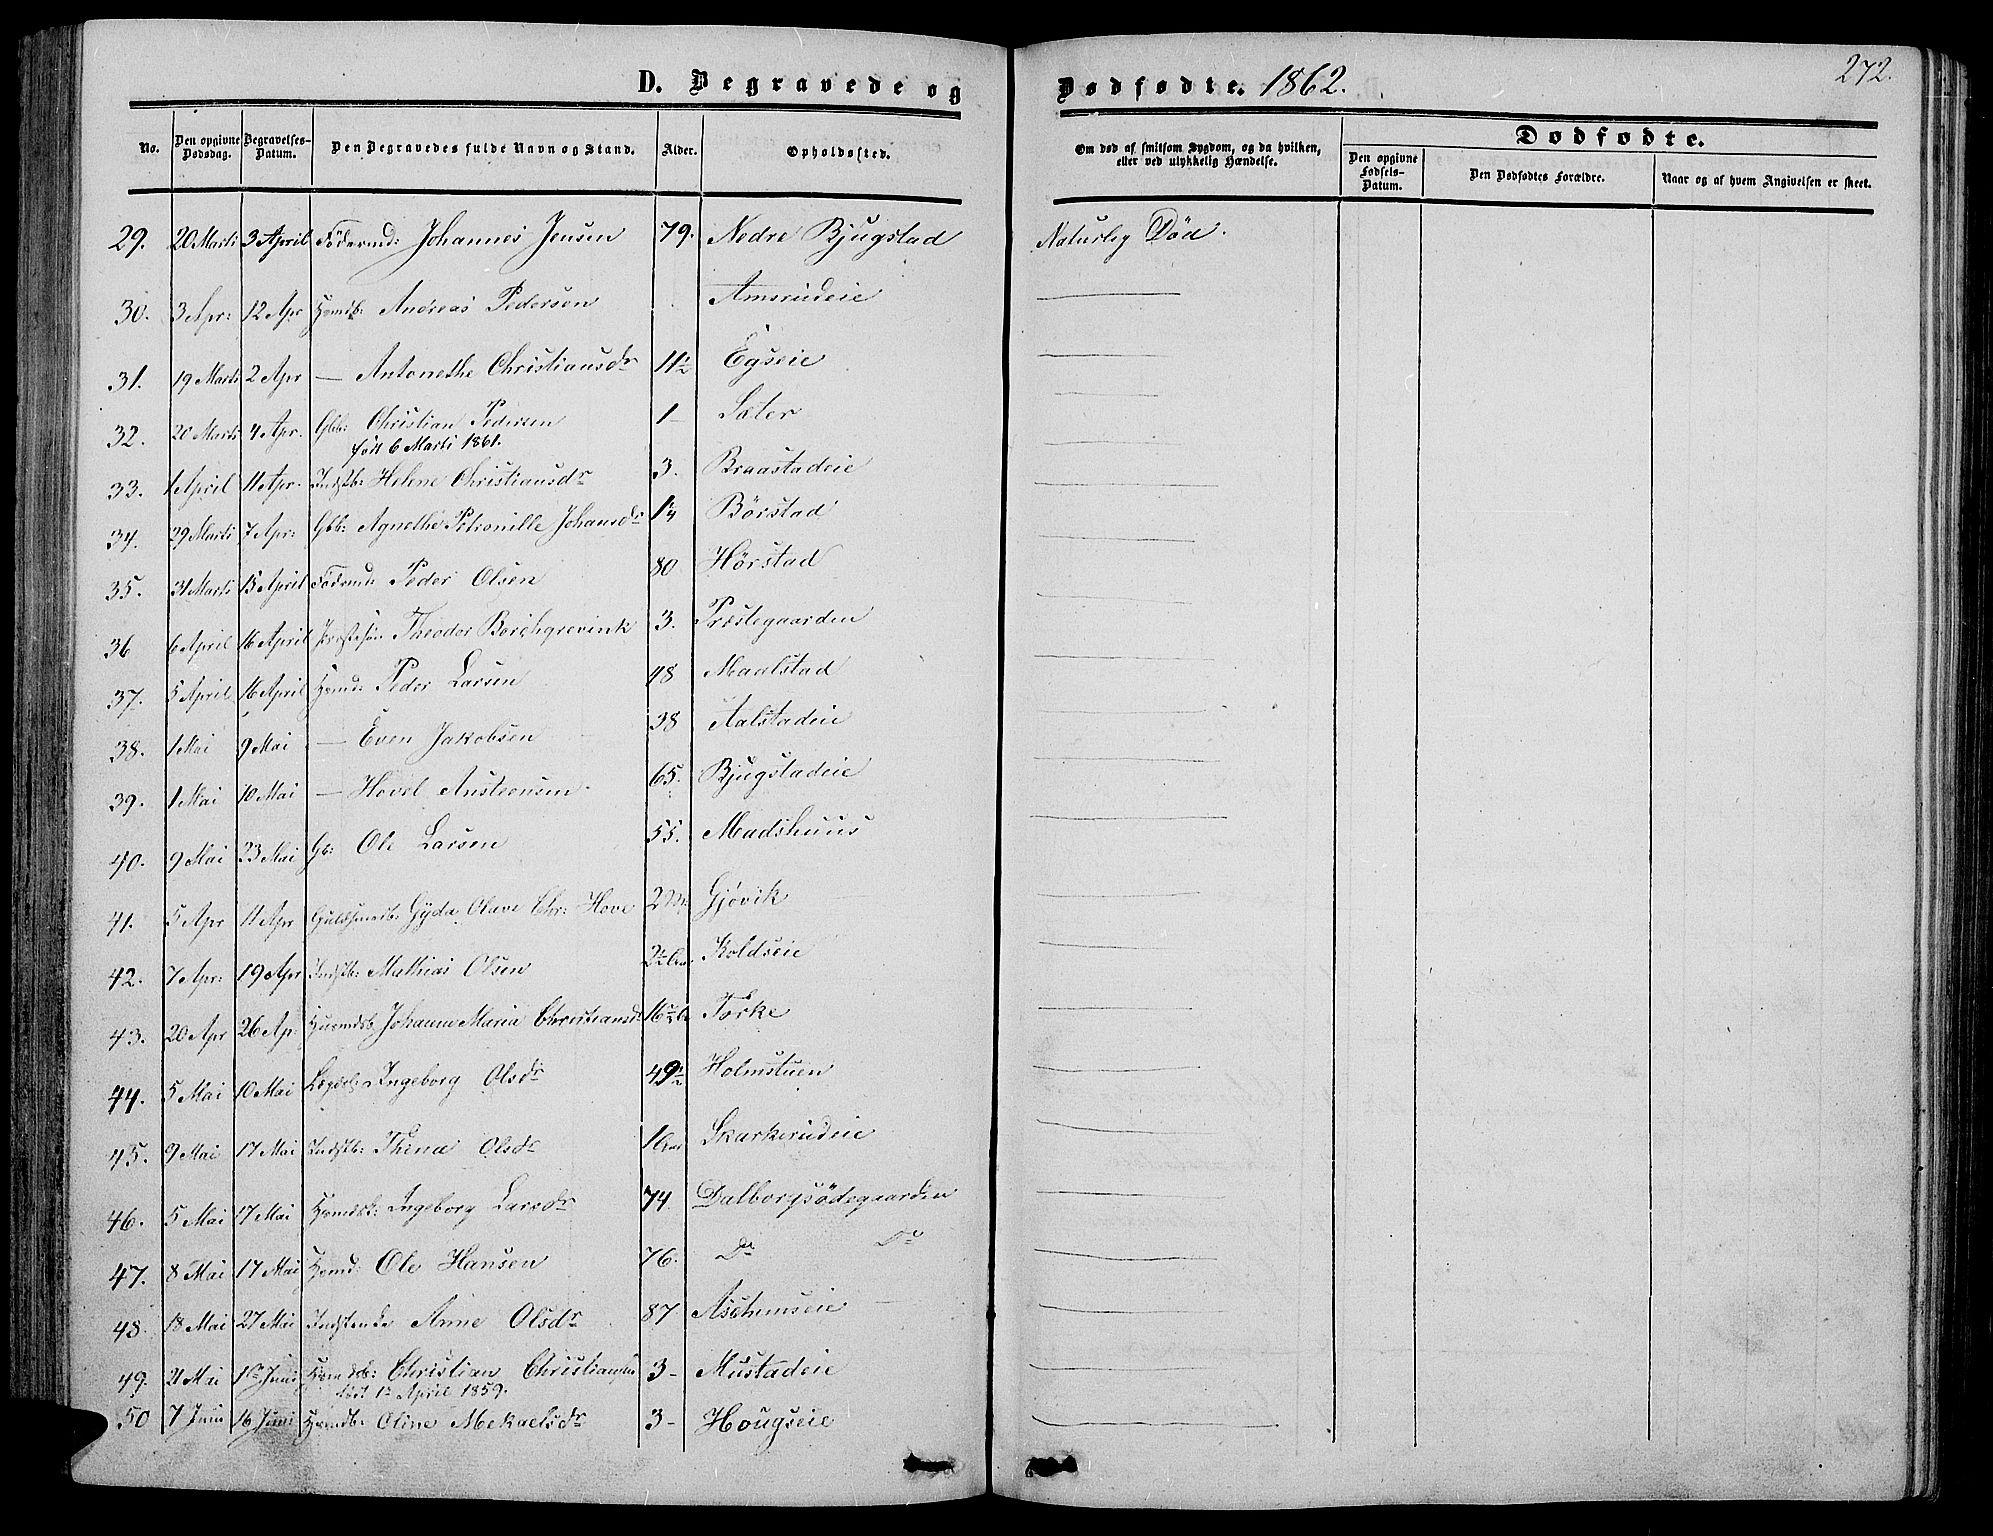 D. Begravede og Dødfødte. 1862.
272.
No. Den opgivne Dødsdag. Begravelses-Datum. Den Begravedes fulde Navn og Stand. Alder. Opholdssted. Om død af smitsom Sygdom, og da hvilken, eller ved ulykkelig Hændelse. Dødfødte.
Den opgivne Fødsels-Datum. Den Dødfødtes Forældre. Naar og af hvem Angivelsen er skeet.
29. 20 Marts 3 April Födermd: Johannes Jensen 79. Nedre Bjugstad Naturlig Død.
30. 3 Apr: 12 Apr Hsmdb: Andreas Pedersen Amsrudeie
31. 19 Marts 2 Apr — Antonethe Christiansdr 1½ Egseie
32. 20 Marts 4 Apr. Gbb: Christian Pedersen 1 Sæter
föd 6 Marts 1861.
33. 1 April 11 Apr. Indstb: Helene Christiansdr 3. Braastadeie
34. 29 Marts 7 Apr: Gbb: Agnethe Petronille Johansdr 1¼ Börstad
35. 31 Marts 15 April Födermd: Peder Olsen 80 Hörstad
36 6 April 16 April Theodor Borchgrevink 3. Præstegaarden
37. 5 April 16 April Hsmd: Peder Larsen 48 Maalstad
38. 1 Mai 9 Mai — Even Jakobsen 38 Aalstadeie
39. 1 Mai 10 Mai — Hovel Austensen 65. Bjugstadeie
40. 9 Mai 23 Mai Gb: Ole Larsen 55. Madshuus
41. 5 Apr 11 Apr Guldsmedb: Gyda Olave Chr: Hove 2 Gjövik
42. 7 Apr: 19 Apr Indstb: Mathias Olsen 2½ Koldseie
43. 20 Apr 26 Ap. Johanne Maria Christiansd Torke
44. 5 Mai 10 Mai Lægdsl: Ingeborg Olsdr 49½ Holmstuen
45. 9 Mai 17 Mai Indstb: Thina Olsdr 1 Skarkerudeie
46. 5 Mai 17 Mai Hsmdsk: Ingeborg Larsdr 74. Dalborgsödegaarden
47. 8 Mai 17 Mai Hsmd: Ole Hansen 76. Do Do
48. 18 Mai 27 Mai Indstenke Anne Olsdr 87. Aschimseie
49. 21 Mai 1ste Juni Hsmdsb: Christian Christiansen 3- Mustadeie
föd 12 April 1859.
50 7 Juni 16 Juni Hsmdb: Oline Mekaelsdr 3- Hougseie